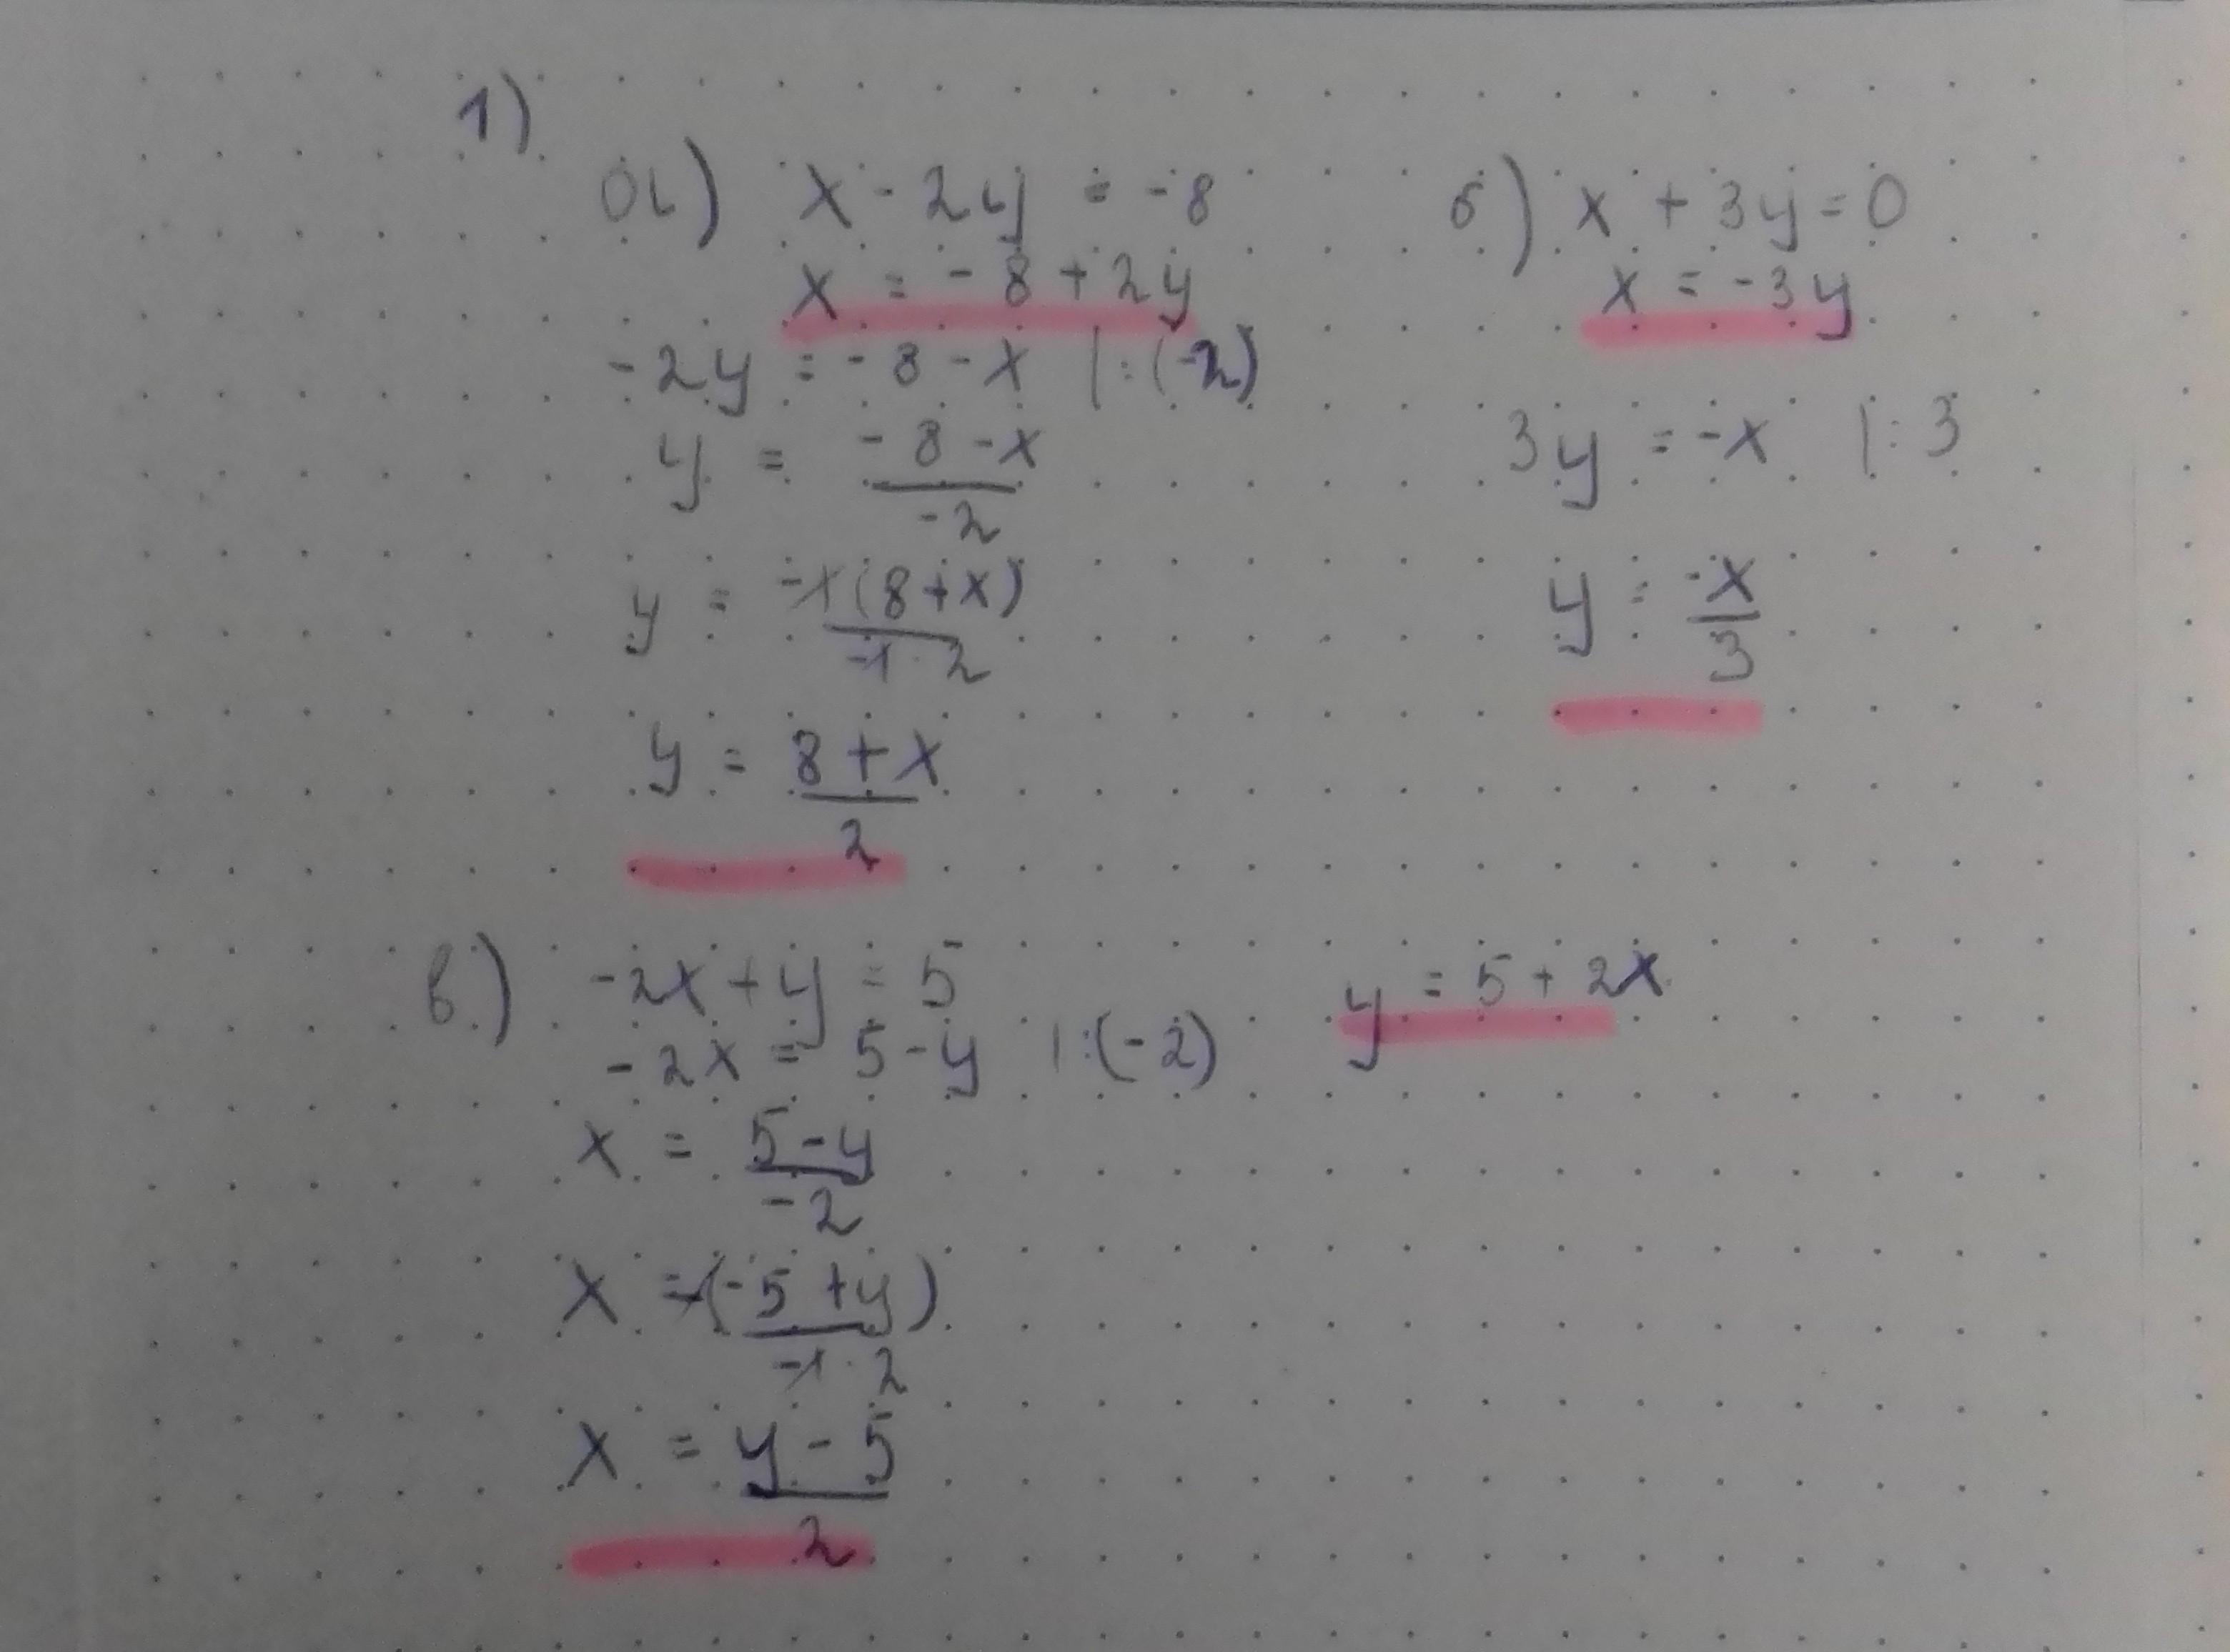 1)
а) x - 2y = -8
x = -8 + 2y
-2y = -8 - x |:(-2)
y = \frac{-8-x}{-2}
y = \frac{-1(8+x)}{-1·2}
y = \frac{8+x}{2}
б) x + 3y = 0
x = -3y
3y = -x |:3
y = \frac{-x}{3}
в) -2x + y = 5
-2x = 5 - y |:(-2)
x = \frac{5-y}{-2}
x = \frac{-(-5+y)}{-1·2}
x = \frac{y-5}{2}
y = 5 + 2x